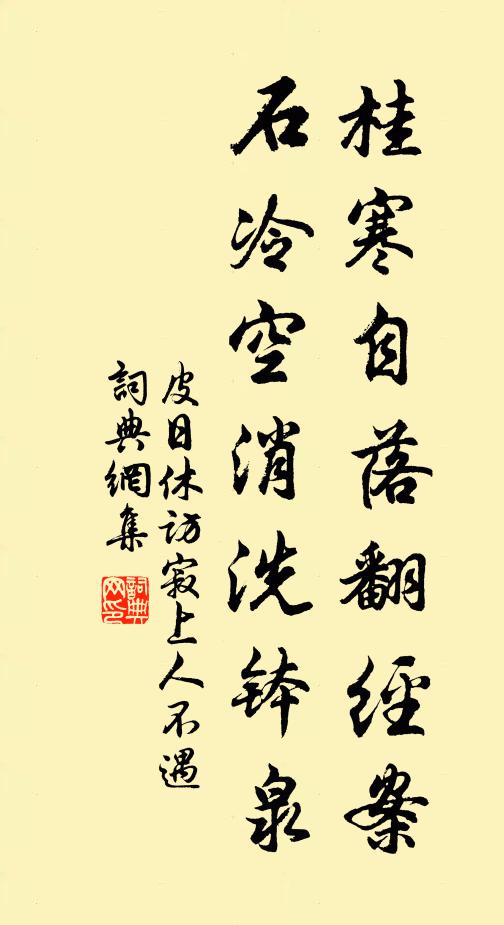 桂寒自落翻經案
石冷空消洗鉢泉
皮日休訪寂上人不遇
詞典網集
詞典网印